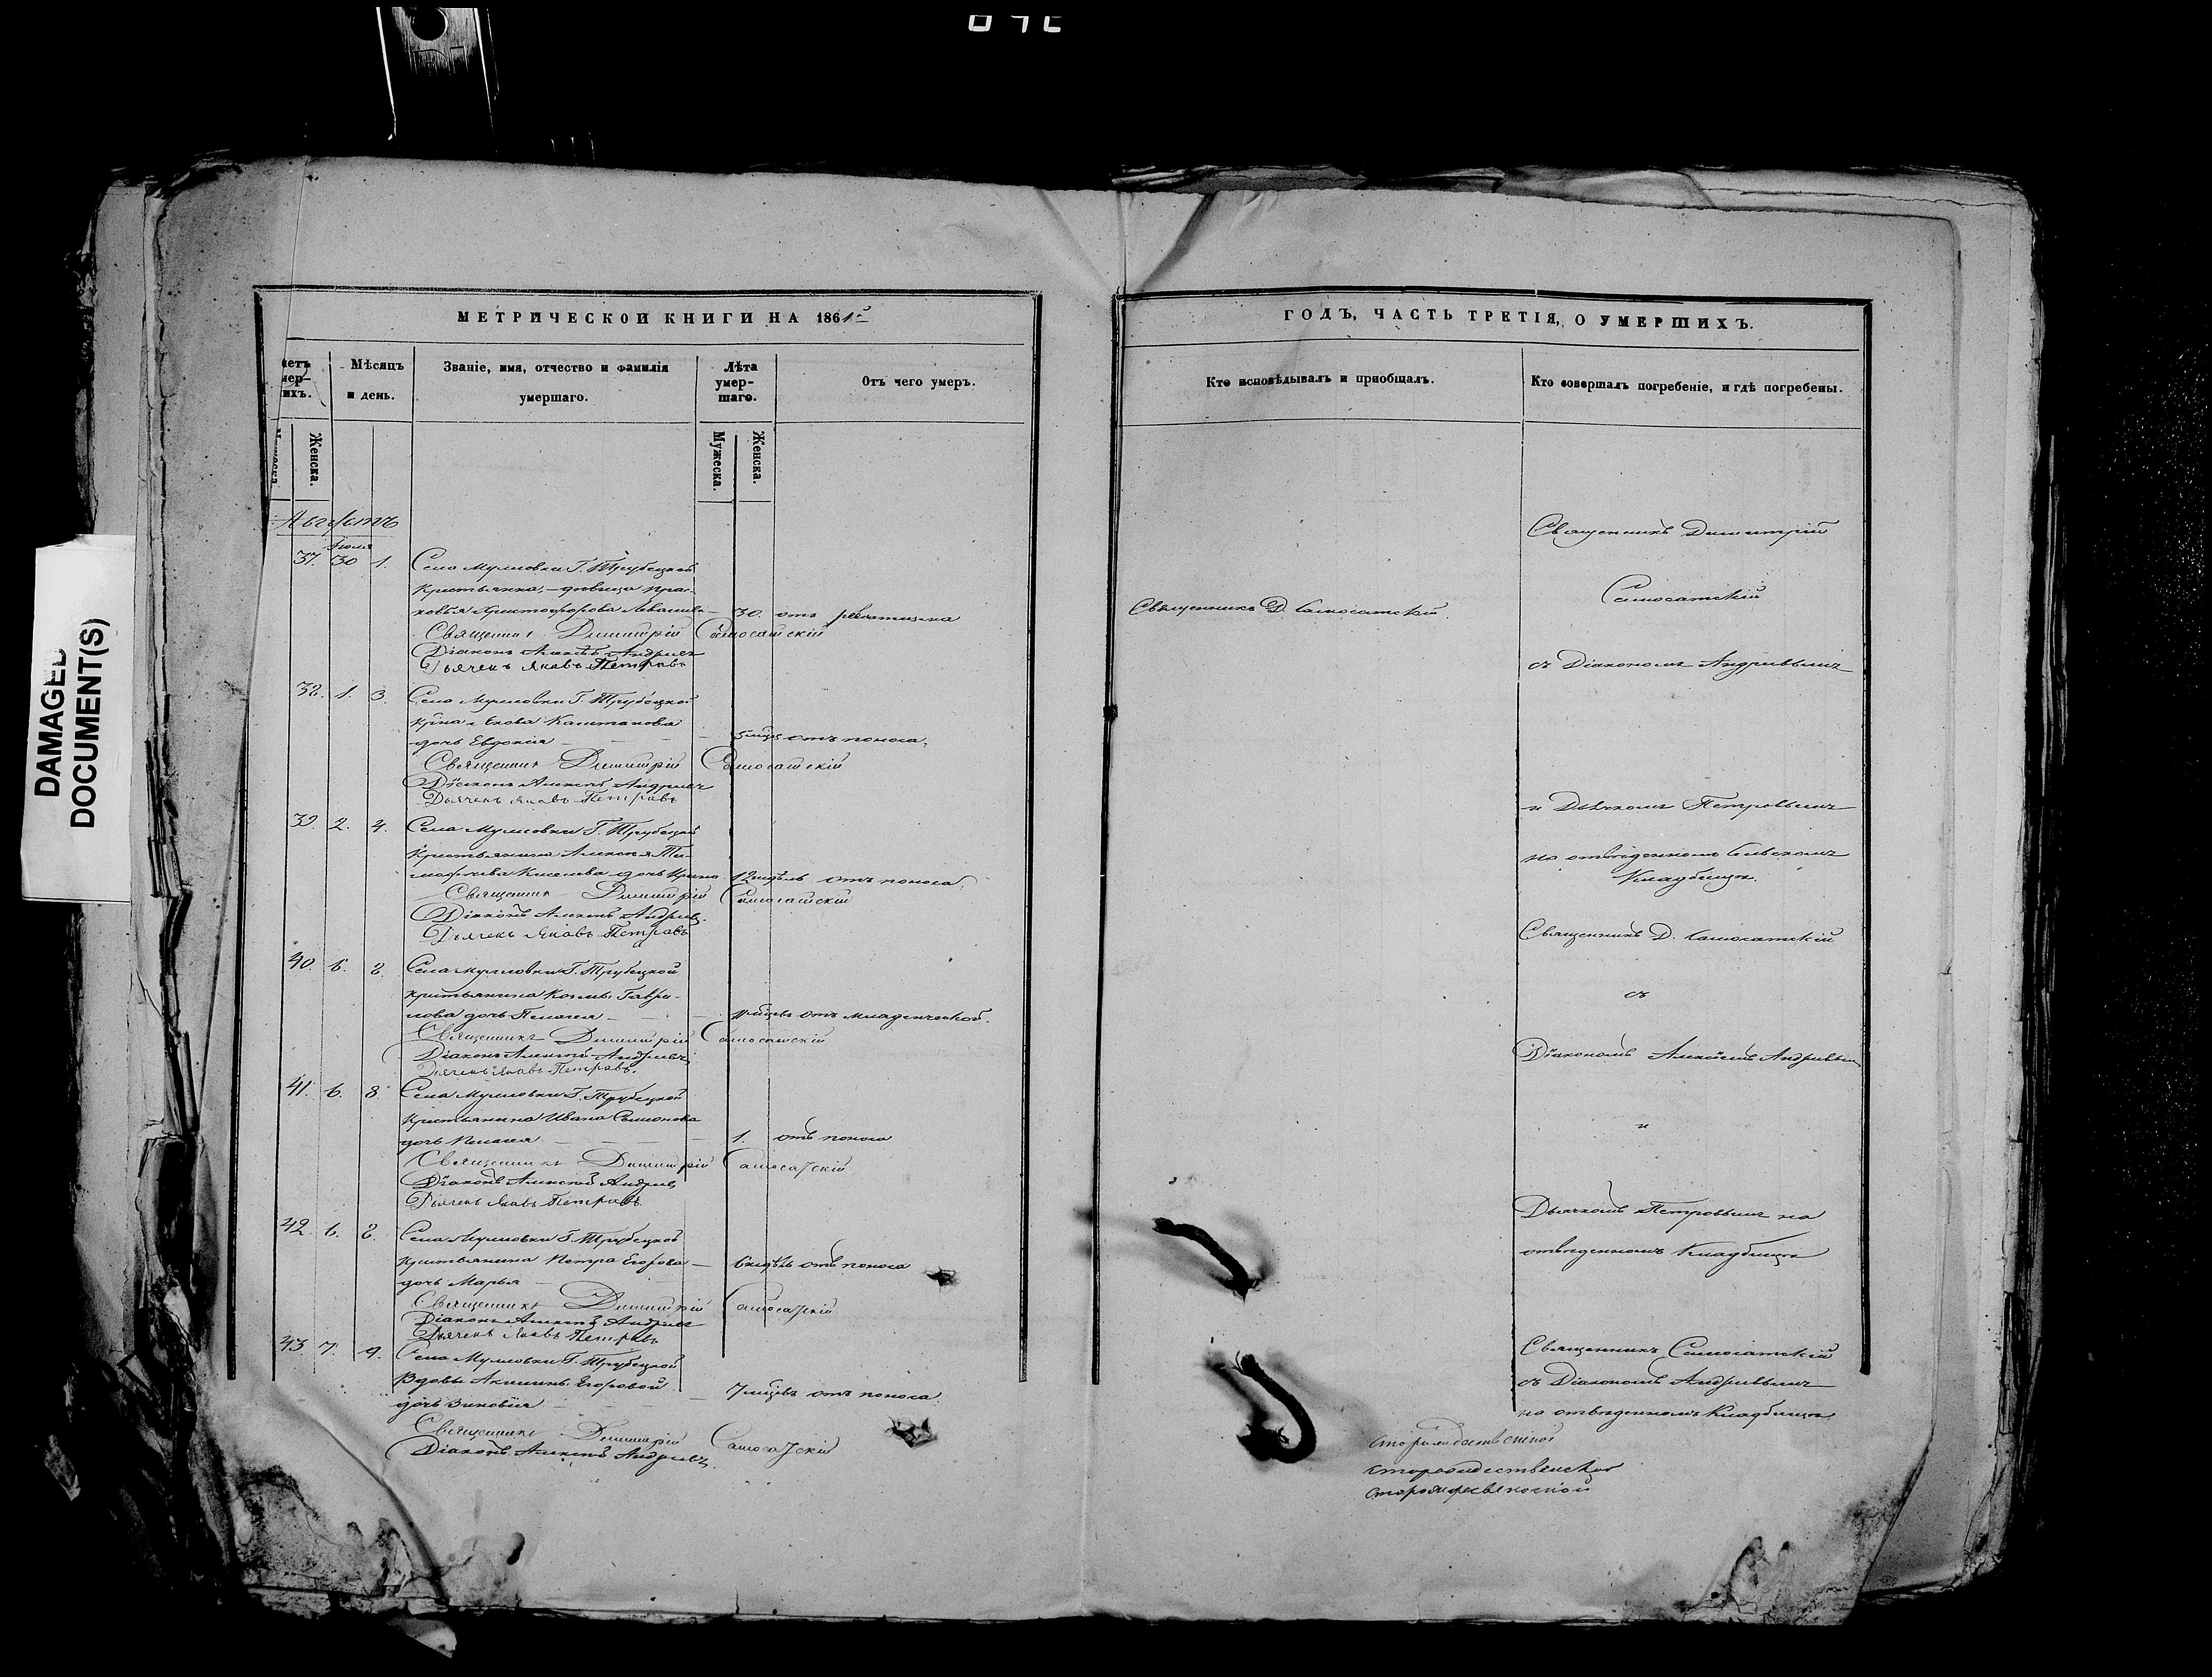 DAMAGED
DOCUMENT(S)
МЕТРИЧЕСКОЙ КНИГИ НА 1861й
Мѣсяцъ
и день.
Званіе, имя, отчество и фамилія
умершаго.
Лѣта
умер-
шаго.
Отъ чего умеръ.
Женска.
Мужеска.
Женска.
Августъ
Іюля
37. 30 1. Села Мулловки Г. Трубецкой
крестьянка, девица Прас-
ковья Христофорова 30. отъ
Священникъ Димитрій Самосатскій
Діаконъ Алексѣй Андреевъ
Дьячекъ Яковъ Петровъ
38. 1. 3. Села Мулловки Г. Трубецкой
дочь Евдокія 5 мцъ отъ поноса.
Священникъ Димитрій Самосатскій
Діаконъ Алексѣй Андреевъ
Дьячекъ Яковъ Петровъ
39. 2. 4. Села Мулловки Г. Трубецкой
крестьянина Алексея Ти-
мофеева Киселева дочь Ирина 12 недѣль отъ поноса.
Священникъ Димитрій Самосатскій
Діаконъ Алексѣй Андреевъ
Дьячекъ Яковъ Петровъ
40. 6. 8. Села Мулловки Г. Трубецкой
крестьянина Козмы Гаври-
лова дочь Пелагея мцевъ отъ младенческой.
Священникъ Димитрій Самосатскій
Діаконъ Алексѣй Андреевъ
Дьячекъ Яковъ Петровъ.
41. 6. 8. Села Мулловки Г. Трубецкой
крестьянина Ивана Семионова
дочь Пелагея 1. отъ поноса
Священникъ Димитрій Самосатскій
Діаконъ Алексѣй Андреевъ
Дьячекъ Яковъ Петровъ
42. 6. 8. Села Мулловки Г. Трубецкой
крестьянина Петра Егорова 6 недѣль отъ поноса
дочь Марья
Священникъ Димитрій Самосатскій
Діаконъ Алексѣй Андреевъ
Дьячекъ Яковъ Петровъ
43. 7. 9. Села Мулловки Г. Трубецкой
Вдовы Акилины Егоровой 7 мцевъ отъ поноса
дочь Зиновія
Священникъ Димитрій Самосатскій
Діаконъ Алексѣй Андреевъ
ГОДЪ, ЧАСТЬ ТРЕТІЯ, О УМЕРШИХЪ.
Кто исповѣдывалъ и пріобщалъ.
Кто совершалъ погребеніе, и гдѣ погребены.
Священникъ Д. Самосатскій.
Священникъ Димитрій
Самосатскій
съ Діакономъ Андреевымъ
и Дьячкомъ Петровымъ
на отведенномъ сельскомъ
Кладбищѣ.
Священникъ Д. Самосатскій
съ
Діакономъ Алексѣемъ Андреевымъ
и
Дьячкомъ Петровымъ на
отведенномъ Кладбищѣ
Священникъ Самосатскій
съ Діакономъ Андреевымъ
на отведенномъ Кладбищѣ.